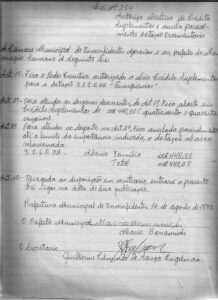 Lei Nº 254
Autoriza abertura de Crédito
Suplementar e anula parcial-
mente dotação orçamentária
A Câmara Municipal de Inconfidentes aprovou e eu, prefeito do Mu-
nicípio sanciono a seguinte Lei:
Art 1º - Fica o Poder Executivo autorizado a abrir Crédito Suplementar
para a dotação 3.1.5.0.02
Art 2º - Para atender as despesas decorrentes do Art 1º, Fica aberto um
Crédito Suplementar de
Art 3º Para atender ao disposto no Art 2º, Fica anulada parcialmente
até o limite da importância indicada, a dotação abaixo
relacionada:
3.2.5.0.02 - Abono Família
Total
Art 4º - Revogada as disposições em contrário, entrará a presente
Lei vigor na data de sua publicação.
Prefeitura Municipal de Inconfidentes, de agosto de 1972
O Prefeito Municipal
Mario Bonamichi
O Secretário
Guilherme de Souza Engelman